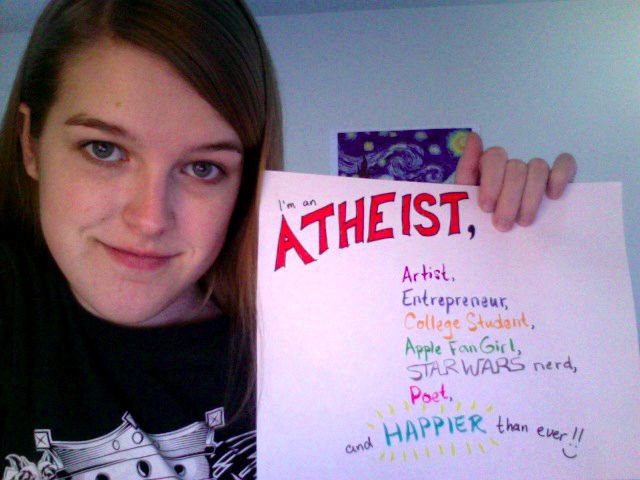 I'm an
ATHEIST,
Artist,
Entrepreneur,
College Student,
Apple FanGirl,
STAR WARS nerd,
Poet,
and HAPPIER than ever!!